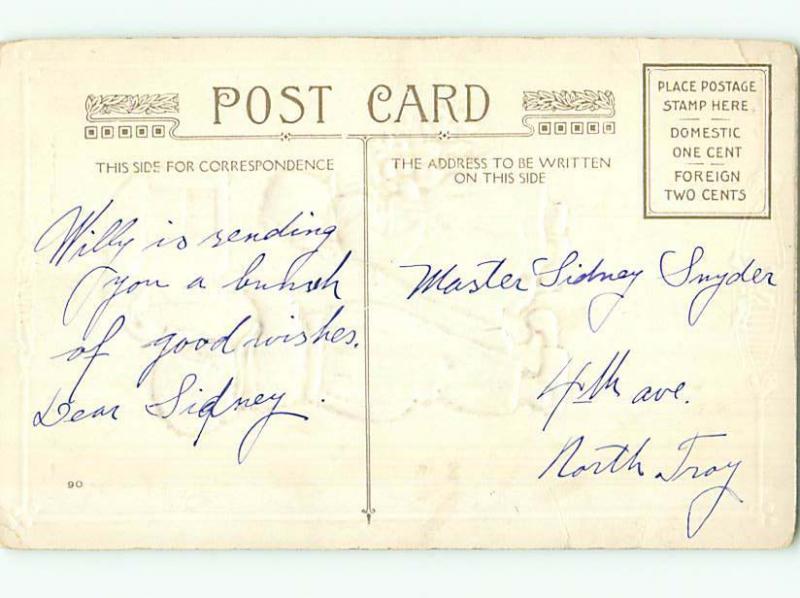 POST CARD
PLACE POSTAGE
STAMP HERE
DOMESTIC
ONE CENT
FOREIGN
TWO CENTS
THIS SIDE FOR CORRESPONDENCE
THE ADDRESS TO BE WRITTEN
ON THIS SIDE
Willy is sending
you a bunch
of good wishes.
Dear Sidney.
Master Sidney Snyder
4th ave.
North Troy
90